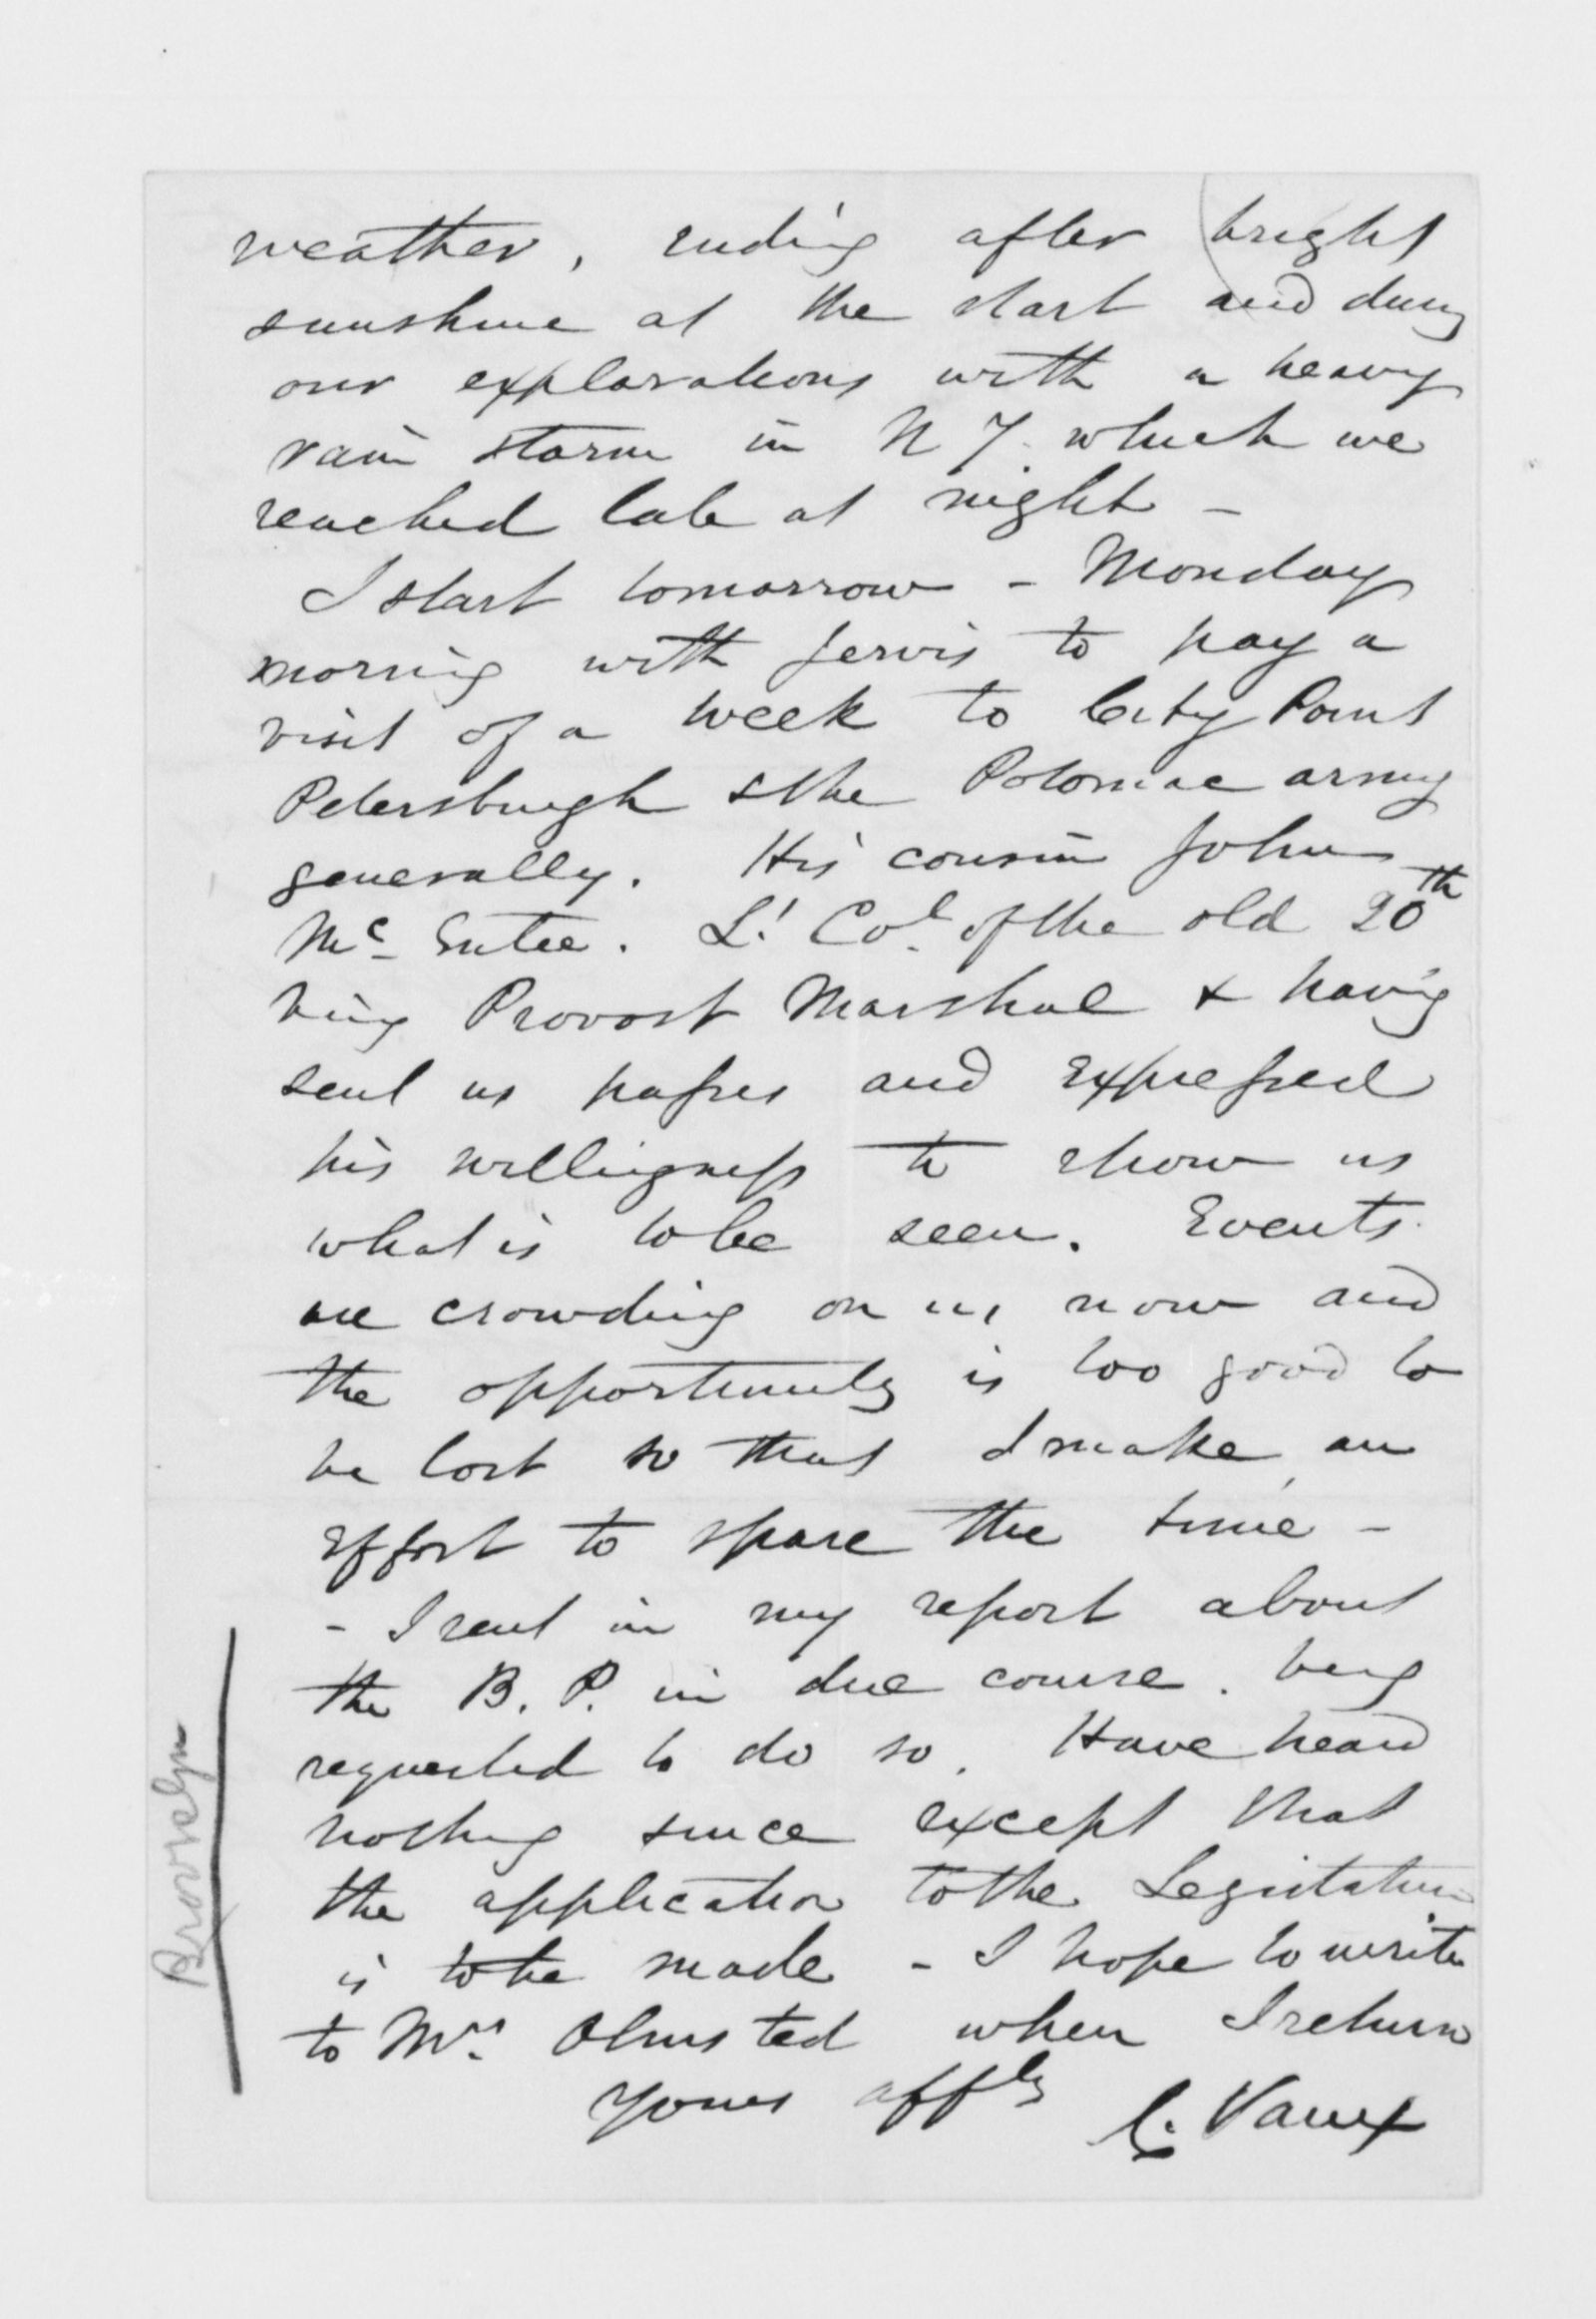 weather, ending after bright
sunshine at the start and during
our explorations with a heavy
rain storm in N Y. which we
reached late at night -
I start tomorrow - Monday
morning with Jervis to pay a
visit of a week to City Point
Petersburgh & the Potomac army
generally. His cousin John
Mc Entee. Lt. Col. of the old 20th
being Provost Marshal & having
sent us passes and expressed
his willingness to show us
what is to be seen. Events
are crowding on us now and
the opportunity is too good to
be lost so that I make an
effort to spare the time -
- I sent in my report about
the B. P. in due course. being
requested to do so. Have heard
nothing since except that
the application to the Legislature
is to be made - I hope to write
to Mrs. Olmsted when I return
Yours affly C. Vaux
Brooklyn